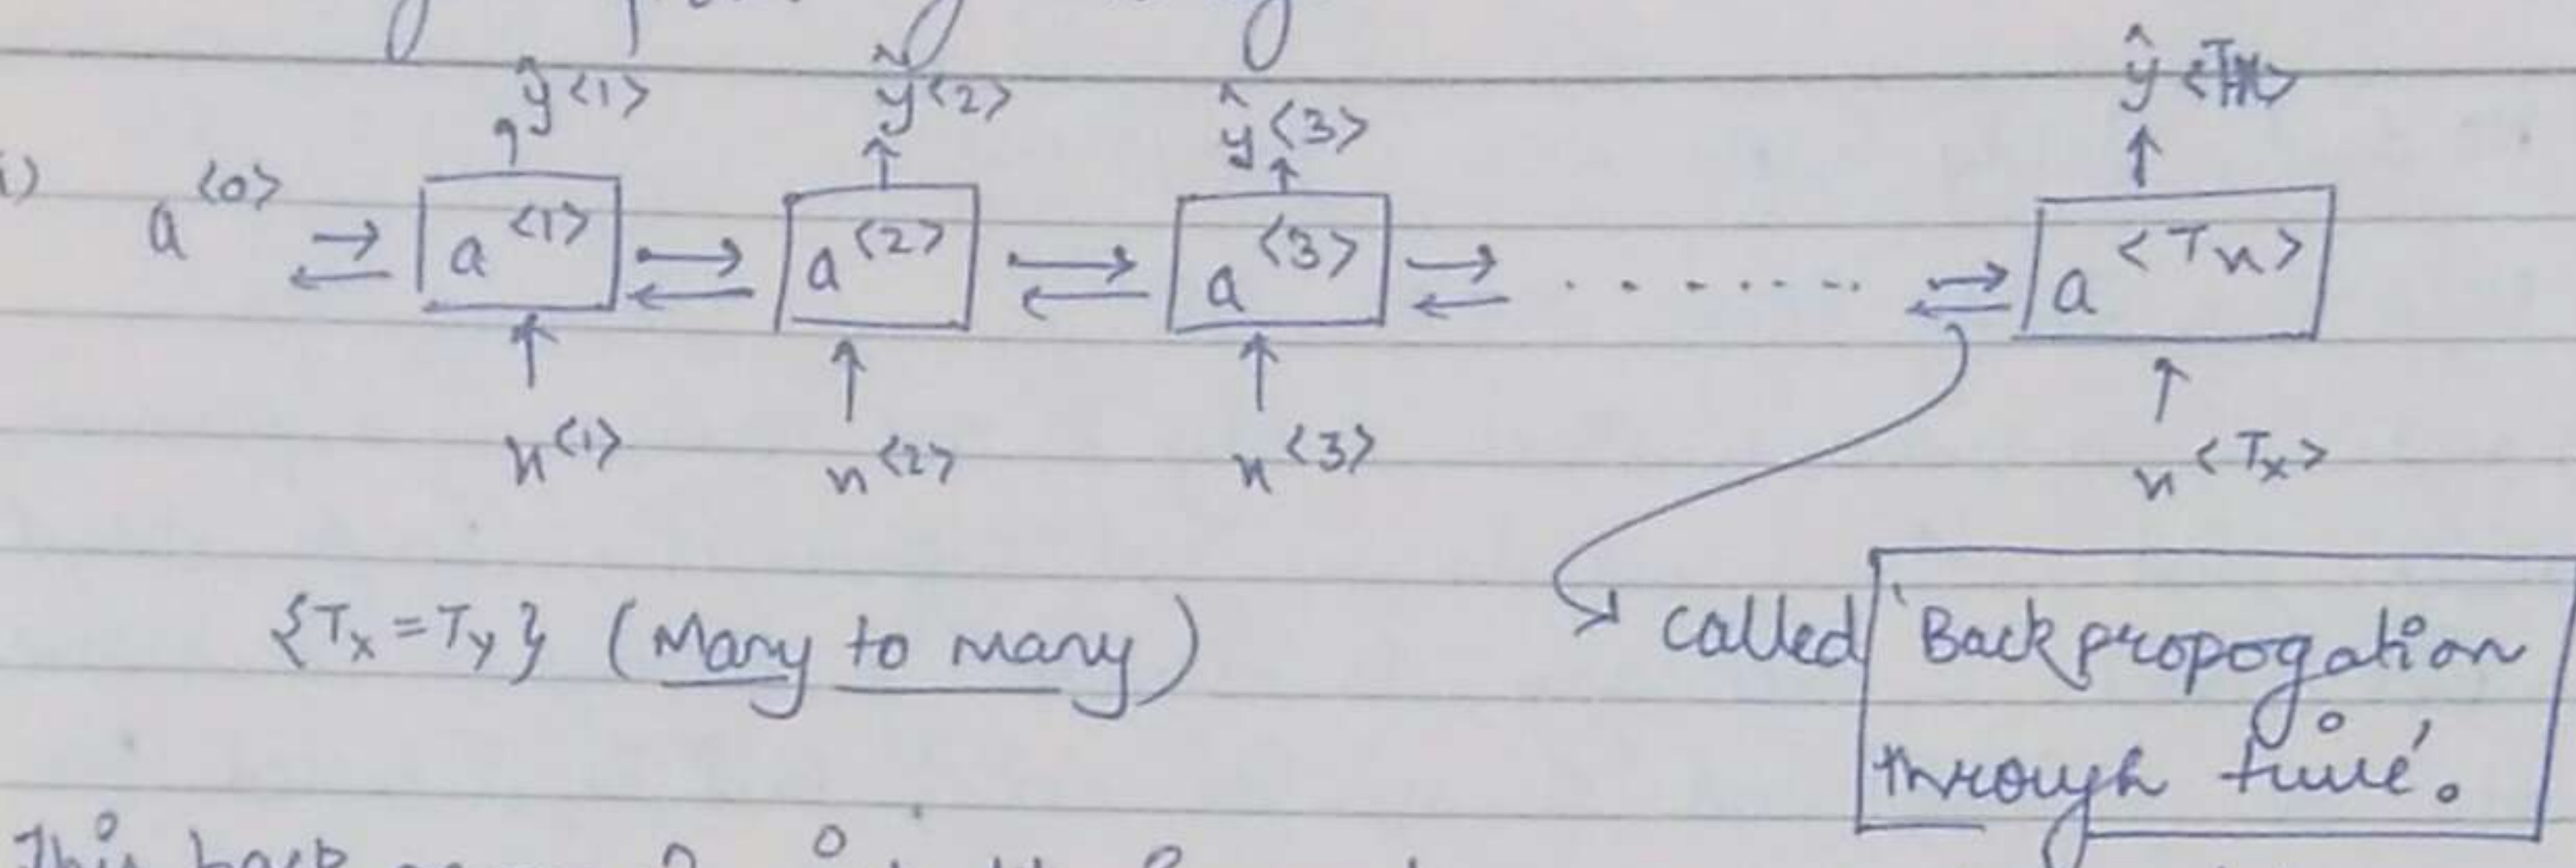 ŷ<1> ŷ<2> ŷ<3> ŷ
i) a<0> a<1> a<2> a<3> ........ a<Tx>
x<1> x<2> x<3> x<Tx>
{Tx = Ty} (Many to many) called 'Backpropogation
through time'.
This back